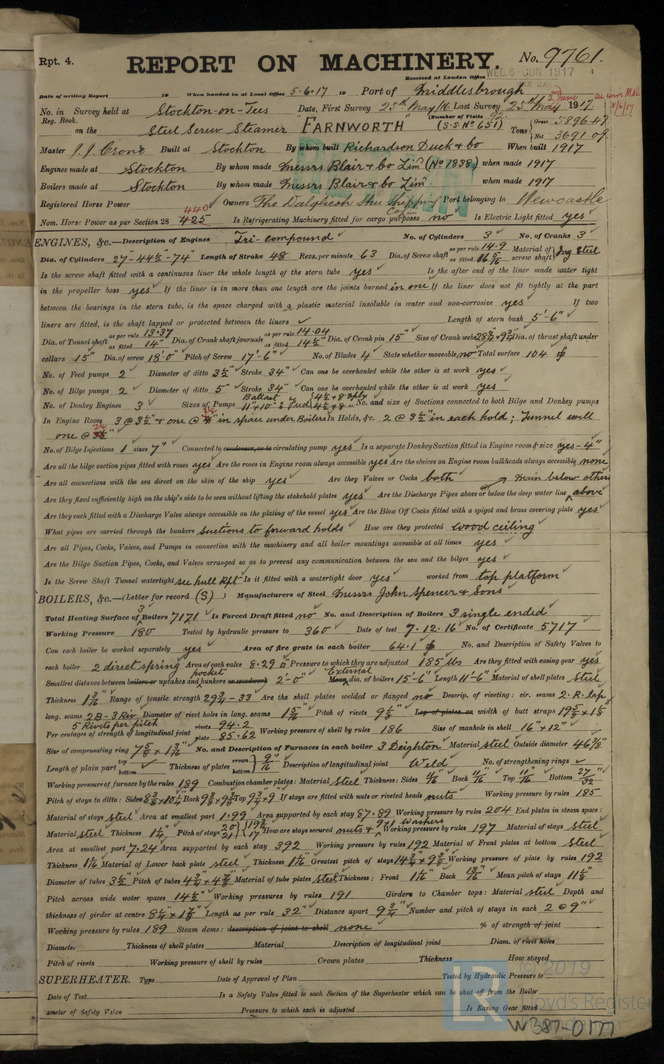 Rpt. 4.
REPORT ON MACHINERY.
No. 9761.
Received at London Office WED. 6-JUN 1917
Date of writing Report 19 When handed in at Local Office 5.6.17 19 Port of Middlesbrough
No. in Survey held at Stockton-on-Tees Date, First Survey 25th May/16 Last Survey 25th May 1917
Reg. Book. (Number of Visits
on the Steel Screw Steamer "FARNWORTH" (S.S. No 651) Tons Gross 5896.47 Net 3691.09
Master J. J. Crone Built at Stockton By whom built Richardson Duck & Co When built 1917
Engines made at Stockton By whom made Messrs Blair & Co Lim. (No 1838) when made 1917
Boilers made at Stockton By whom made Messrs Blair & Co Lim. when made 1917
Registered Horse Power Owners The Dalgliesh Stm Shipping Co Port belonging to Newcastle
Nom. Horse Power as per Section 28 440 425 Is Refrigerating Machinery fitted for cargo purposes no Is Electric Light fitted yes
ENGINES, &c.—Description of Engines Tri-compound No. of Cylinders 3 No. of Cranks 3
Dia. of Cylinders 27-44½-74" Length of Stroke 48 Revs. per minute 63 Dia. of Screw shaft as per rule 14.9 as fitted Material of screw shaft Ing Steel
Is the screw shaft fitted with a continuous liner the whole length of the stern tube yes Is the after end of the liner made water tight
in the propeller boss yes If the liner is in more than one length are the joints burned in one If the liner does not fit tightly at the part
between the bearings in the stern tube, is the space charged with a plastic material insoluble in water and non-corrosive yes If two
liners are fitted, is the shaft lapped or protected between the liners Length of stern bush 5'-6"
Dia. of Tunnel shaft as per rule 13.37 as fitted 14" Dia. of Crank shaft journals as per rule 14.04 as fitted 14½ Dia. of Crank pin 15" Size of Crank webs 28½ × 9¼ Dia. of thrust shaft under
collars 15" Dia. of screw 18'-0" Pitch of Screw 17'-6" No. of Blades 4 State whether moveable no Total surface 104
No. of Feed pumps 2 Diameter of ditto 3½" Stroke 34" Can one be overhauled while the other is at work yes
No. of Bilge pumps 2 Diameter of ditto 5" Stroke 34" Can one be overhauled while the other is at work yes
No. of Donkey Engines 3 Sizes of Pumps Ballast 11" × 10" No. and size of Suctions connected to both Bilge and Donkey pumps
In Engine Room 3 @ 3½" & one @ in space under Boilers In Holds, &c. 2 @ 3½" in each hold; Tunnel well
one @
No. of Bilge Injections 1 sizes 7" Connected to condenser, or to circulating pump yes Is a separate Donkey Suction fitted in Engine room & size yes - 4"
Are all the bilge suction pipes fitted with roses yes Are the roses in Engine room always accessible yes Are the sluices on Engine room bulkheads always accessible none
Are all connections with the sea direct on the skin of the ship yes Are they Valves or Cocks both main below others
Are they fixed sufficiently high on the ship's side to be seen without lifting the stokehold plates yes Are the Discharge Pipes above or below the deep water line above
Are they each fitted with a Discharge Valve always accessible on the plating of the vessel yes Are the Blow Off Cocks fitted with a spigot and brass covering plate yes
What pipes are carried through the bunkers Suctions to forward holds How are they protected wood ceiling
Are all Pipes, Cocks, Valves, and Pumps in connection with the machinery and all boiler mountings accessible at all times yes
Are the Bilge Suction Pipes, Cocks, and Valves arranged so as to prevent any communication between the sea and the bilges yes
Is the Screw Shaft Tunnel watertight see hull Rpt Is it fitted with a watertight door yes worked from top platform
BOILERS, &c.—(Letter for record (S)) Manufacturers of Steel Messrs John Spencer & Sons
Total Heating Surface of Boilers 7171 Is Forced Draft fitted no No. and Description of Boilers 3 single ended
Working Pressure 180 Tested by hydraulic pressure to 360 Date of test 7.12.16 No. of Certificate 5717
Can each boiler be worked separately yes Area of fire grate in each boiler 64.1 No. and Description of Safety Valves to
each boiler 2 direct spring Area of each valve 8.29 Pressure to which they are adjusted 185 lbs Are they fitted with easing gear yes
Smallest distance between boilers or uptakes and pocket bunkers or woodwork 2'-0" External Mean dia. of boilers 15'-6" Length 11'-6" Material of shell plates Steel
Thickness Range of tensile strength 29¾-33 Are the shell plates welded or flanged no Descrip. of riveting: cir. seams 2-R-Lap
long. seams 2B-3Riv Diameter of rivet holes in long. seams Pitch of rivets Lap of plates or width of butt straps
5 Rivets per pitch
Per centages of strength of longitudinal joint rivets 94.2 plate 85.62 Working pressure of shell by rules 186 Size of manhole in shell 16" × 12"
Size of compensating ring No. and Description of Furnaces in each boiler 3 Deighton Material steel Outside diameter
Length of plain part top bottom Thickness of plates crown bottom Description of longitudinal joint Weld No. of strengthening rings
Working pressure of furnace by the rules 189 Combustion chamber plates: Material Steel Thickness: Sides Back Top Bottom
Pitch of stays to ditto: Sides Back Top If stays are fitted with nuts or riveted heads nuts Working pressure by rules 185
Material of stays Steel Area at smallest part 1.99 Area supported by each stay 87.89 Working pressure by rules 204 End plates in steam space:
Material steel Thickness Pitch of stays How are stays secured nuts & washers Working pressure by rules 197 Material of stays Steel
Area at smallest part 7.24 Area supported by each stay 392 Working pressure by rules 192 Material of Front plates at bottom Steel
Thickness Material of Lower back plate Steel Thickness Greatest pitch of stays Working pressure of plate by rules 192
Diameter of tubes 3½" Pitch of tubes Material of tube plates Steel Thickness: Front Back Mean pitch of stays
Pitch across wide water spaces 14½" Working pressures by rules 191 Girders to Chamber tops: Material Steel Depth and
thickness of girder at centre Length as per rule 32" Distance apart Number and pitch of stays in each 2 @ 9"
Working pressure by rules 189 Steam dome: description of joint to shell none % of strength of joint
Diameter Thickness of shell plates Material Description of longitudinal joint Diam. of rivet holes
Pitch of rivets Working pressure of shell by rules Crown plates Thickness How stayed
SUPERHEATER. Type Date of Approval of Plan Tested by Hydraulic Pressure to
Date of Test Is a Safety Valve fitted to each Section of the Superheater which can be shut off from the Boiler
Diameter of Safety Valve Pressure to which each is adjusted Is Easing Gear fitted
© 2019
Lloyd's Register
W387-0177